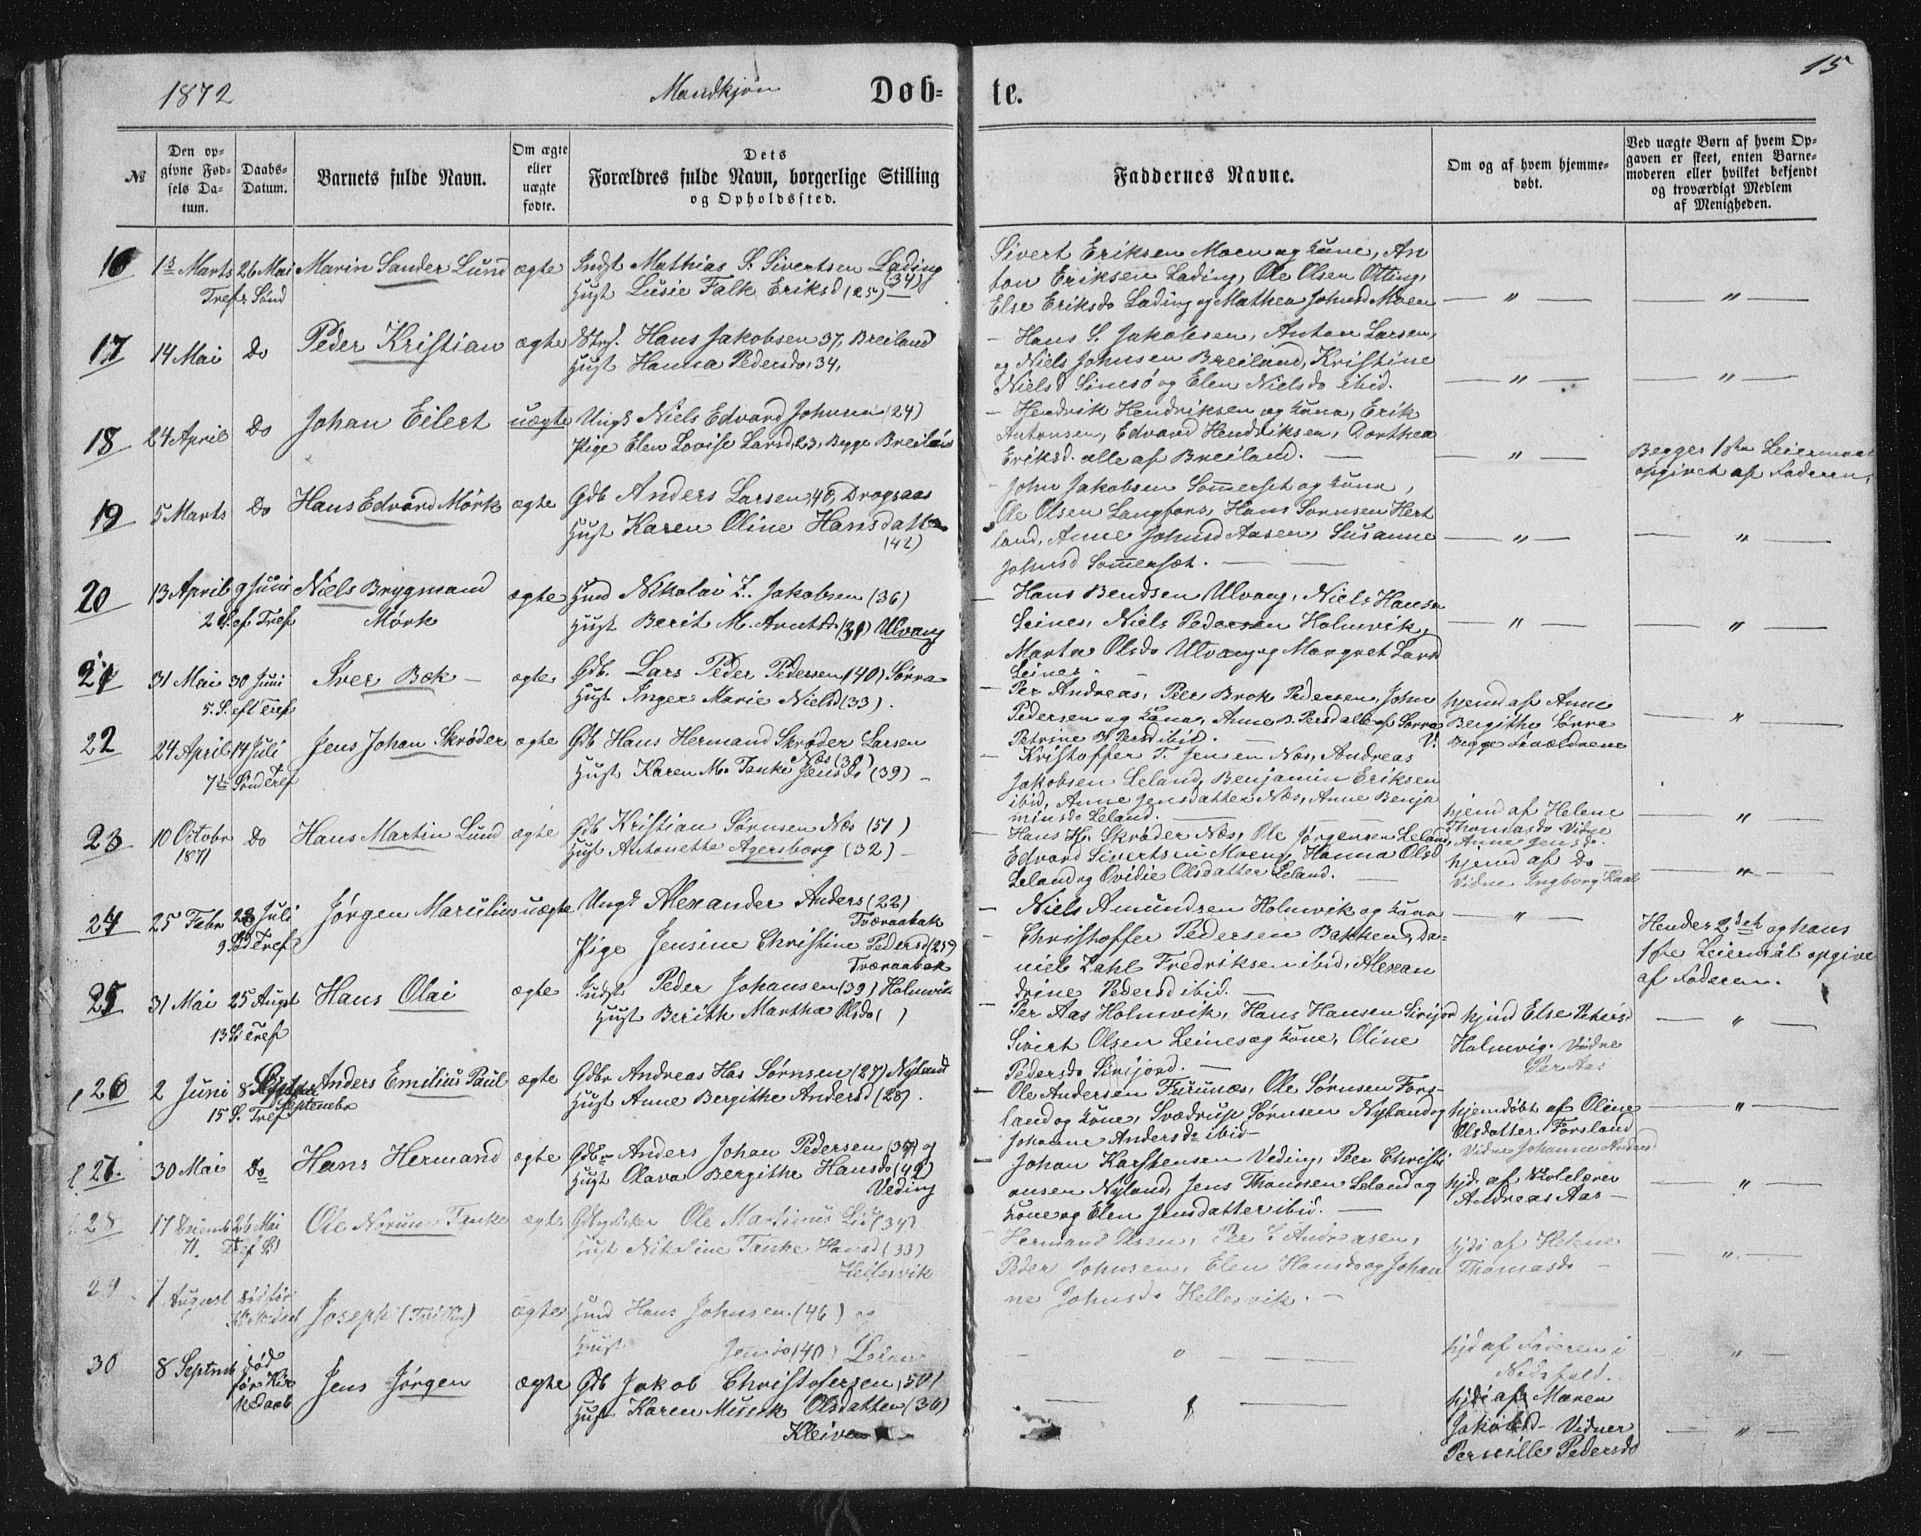 1872 Mandkjøn Døb- te. 15
№
Den op-
givne Fød-
sels Da-
tum.
Daabs-
Datum.
Barnets fulde Navn.
Om ægte
eller
uægte
fødte.
Dets
Forældres fulde Navn, borgerlige Stilling
og Opholdssted.
Faddernes Navne.
Om og af hvem hjemme-
døbt.
Ved uægte Børn af hvem Op-
gaven er skeet, enten Barne-
moderen eller hvilket bekjendt
og troværdigt Medlem
af Menigheden.
16 Marts 26 Mai Marin Sander Lund ægte Indst Mathias S. Sivertsen Lading
Tref: Sönd Hust Lusie Falk Eriksd (25) (34)
Sivert Eriksen Moen og Kone, An
ton Eriksen Lading, Ole Olsen Otting,
Else Eriksd Lading og Mathea Johnsd Moen — " — — " —
17 14 Mai Do Peder Kristian ægte Hans Jakobsen 37, Breiland
Hust Hanna Pedersd 34,
Hans S. Jakobsen, Anton Larsen,
og Niels Johnsen Breiland, Kristine
Nielsd Simsø og Elen Nielsd ibid. — " — — " —
18 24 April Do Johan Eilert uægte Ungk Niels Edvard Johnsen (24)
Pige Elen Lovise Larsd 23, Begge Breiland
Hendrik Hendriksen og Kone, Erik
Antonsen, Edvard Hendriksen, Dorthea
Eriksd. alle af Breiland. — " — Begges 1ste Leiermaal
opgivet af Faderen.
19 5 Marts Do Hans Edvard Mørk ægte Gdb Anders Larsen 40, Dragsaas
Hust Karen Oline Hansdatter
(42)
John Jakobsen Sommerset og Kone,
Ole Olsen Langfors, Hans Sørnsen Hert
land, Anne Johnsd Aasen, Susanne
Johnsd Sommerset. — " — — " —
20 13 April 9 Juni Niels Brygmand ægte Hmd Nikolai Z. Jakobsen (36)
2 S. ef Tref Mørk Hust Berit M. Arntsd (31) Ulvang
Hans Bendsen Ulvang, Niels Hansen
Leines, Niels Pedersen Holmvik,
Marta Olsd Ulvang og Margret Larsd
Leines. — " — — " —
21 31 Mai 30 Juni Iver Bæk ægte Gdb. Lars Peder Pedersen (40) Sørra
5. S. eft Tref Hust Inger Marie Nielsd (33).
Per Andreas, Peer Brok Pedersen, John
Pedersen og Kone, Anne B. Persd alle af Sørra
Petrine B Persd ibid.
hjemd af Anne
Bergithe Sørra
V: Begge Forældrene — " —
22 24 April 14 Juli Jens Johan Skrøder ægte Gdb Hans Hermand Skrøder Larsen
7de Sönd Tref Næs (38)
Hust Karen M. Tanke Jensd (39)
Kristoffer T. Jensen Næs, Andreas
Jakobsen Leland, Benjamin Eriksen
ibid, Anne Jensdatter Næs, Anne Benja
minsd Leland.
hjemd af Helene
Thomasd Vidne
Anne Jensd. — " —
23 10 Octobr Do Hans Martin Lund ægte Gdb Kristian Sørnsen Næs (51)
1871 Hust Antonette Agersborg (32)
Hans H. Skrøder Næs, Ole Jørgensen Leland,
Edvard Sivertsen Moen, Hanna Olsd
Leland og Ovidie Olsdatter Leland.
hjemd af Do
Vidne Ingborg — " —
24 25 Febr 28 Juli Jørgen Marcelius uægte Ungk Alexander Anders (22)
9 Sd Tref Tværaabak
Pige Jensine Christine Pedersd (25)
Tværaabak
Niels Amundsen Holmvik og Kone
Christoffer Pedersen Bakken, Da-
niel Zahl Fredriksen ibid, Alexan
drine Pedersd ibid. — " —
Hendes 2det og hans
1ste Leiermål opgive
af Faderen.
25 31 Mai 25 Augst Hans Olai ægte Indst Peder Johansen (39) Holmvik
13 Sd Tref Hust Berith Martha Olsd ( )
Per Aas Holmvik, Hans Hansen Sirijor
Sivert Olsen Leines og Kone, Oline
Pedersd Sirijord.
hjmd Else Peters.
Holmvig. Vidne
Per Aas — " —
26 2 Juni 8 September Anders Emilius Paul ægte Gdbr Andreas Has Sørnsen (27) Nyland
15 S. Tref Hust Anne Bergithe Andersd (28).
Ole Andersen Furunæs, Ole Sørnsen Fors-
land og Kone, Svædrup Sørnsen Nyland og
Johanne Andersd ibid
hjemdøbt af Oline
Olsdatter Forsland
Vidne Johanne Andersd — " —
27. 30 Mai Do Hans Hermand ægte Gdbr Anders Johan Pedersen (39) og
Hust Olava Bergithe Hansd (42)
Veding
Johan Karstensen Veding, Peer Christi
ansen Nyland, Jens Thomsen Leland og
Kone og Elen Jensdatter ibid.
hjd. af Skolelærer
Andreas Aas — " —
28 17 Decemb 26 Mai Ole Norum Tanke ægte Ole Martinus (34)
71. Tref Sd Hust Nikoline Tanke Hansd (33)
Hellesvik
Hermand Olsen, Per L Andreasen,
Peder Johnsen, Elen Hansd og Johan
ne Johnsd Hellesvik.
hjd af Helene
Thomasd — " —
29 7 August Død før Joseph (Tvilling) ægte Hmd Hans Johnsen (46) og
Hust Jensd (40)
— " — hjd af Faderen i
Nødsfald. — " —
30 8 Septmb død Jens Jørgen ægte Gdb Jakob Christofersen, 50)
før Kir
kedaab Hust Karen Olsdatter (36)
Kleiva
— " — hjd af Maren
Jakobsd Vidner
Pernille Pedersd — " —